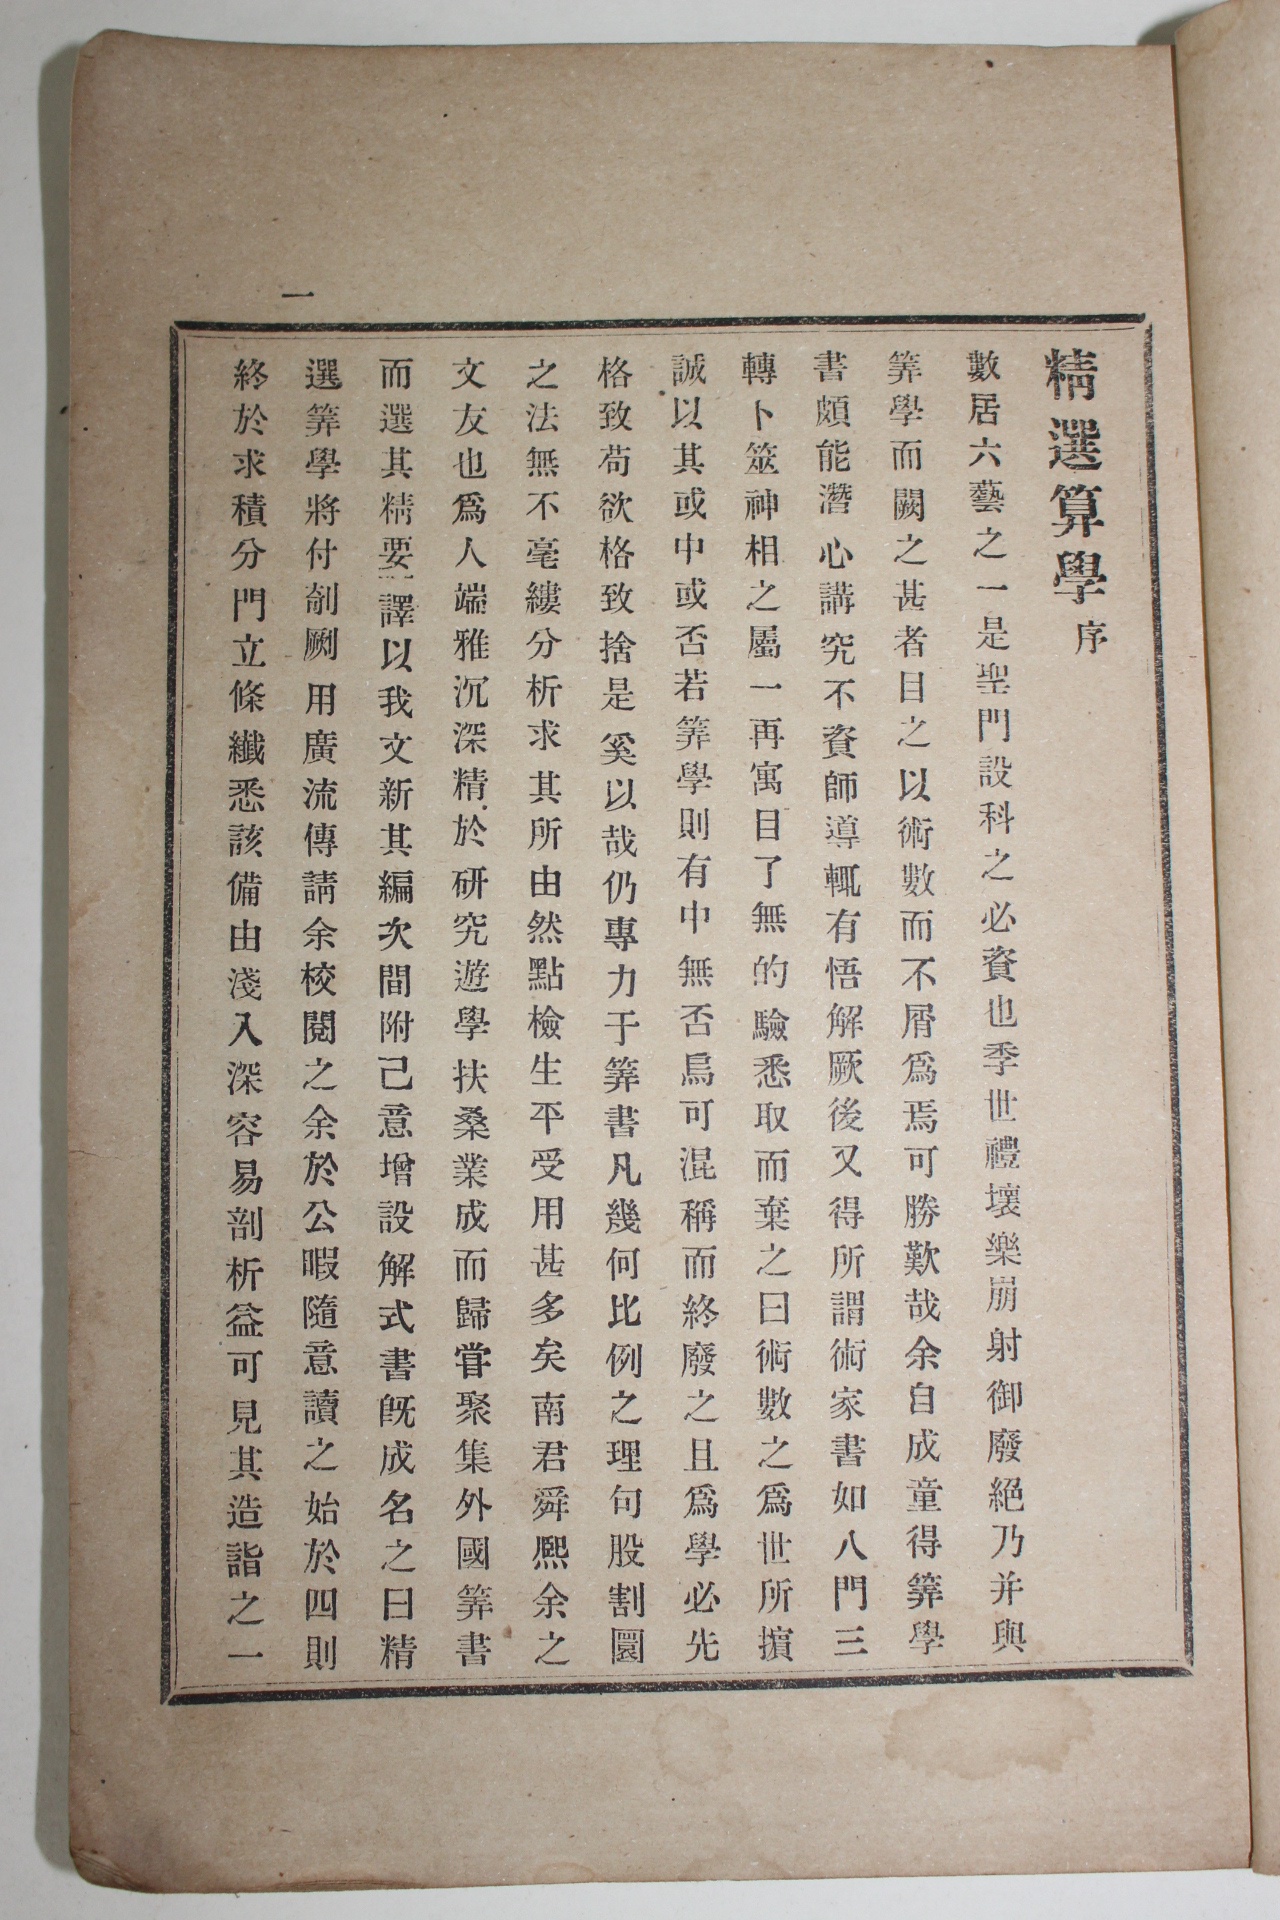 精選算學序
數居六藝之一是聖門設科之必資也季世禮壞樂崩射御廢絕乃并與
筭學而闕之甚者目之以術數而不屑爲焉可勝歎哉余自成童得筭學
書頗能濳心講究不資師導輒有悟解厥後又得所謂術家書如八門三
轉卜筮神相之屬一再寓目了無的驗悉取而棄之曰術數之爲世所擯
誠以其或中或否若筭學則有中無否烏可混稱而終廢之且爲學必先
格致苟欲格致捨是奚以哉仍專力于筭書凡幾何比例之理句股割圜
之法無不毫縷分析求其所由然點檢生平受用甚多矣南君舜熙余之
文友也爲人端雅沉深精於研究遊學扶桑業成而歸甞聚集外國筭書
而選其精要譯以我文新其編次間附己意增設解式書旣成名之曰精
選筭學將付剞劂用廣流傳請余校閱之余於公暇隨意讀之始於四則
終於求積分門立條纖悉該備由淺入深容易剖析益可見其造詣之一
一